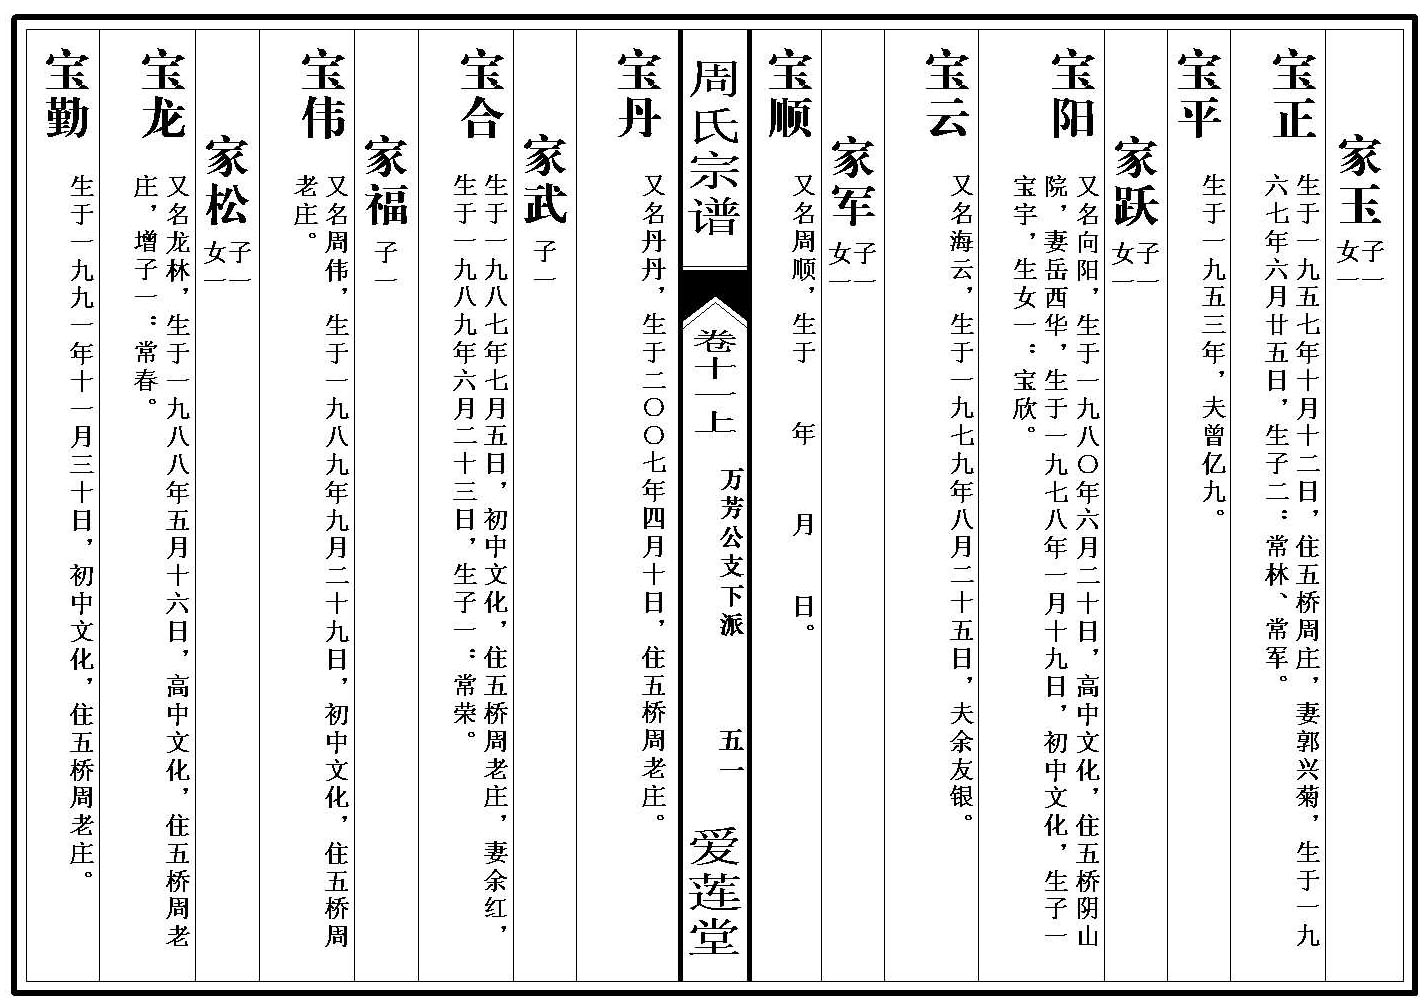 家玉 子一 女一
宝正 生于一九五七年十月十二日，住五桥周庄，妻郭兴菊，生于一九
六七年六月廿五日，生子二：常林、常军。
宝平 生于一九五三年，夫曾亿九。
家跃 子一 女一
宝阳 又名向阳，生于一九八〇年六月二十日，高中文化，住五桥阴山
院，妻岳西华，生于一九七八年一月十九日，初中文化，生子一
宝宇，生女一：宝欣。
宝云 又名海云，生于一九七九年八月二十五日，夫余友银。
家军 子一 女一
宝顺 又名周顺，生于 年 月 日。
周氏宗谱 卷十一上 万芳公支下派 五一 爱莲堂
宝丹 又名丹丹，生于二〇〇七年四月十日，住五桥周老庄。
家武 子一
宝合 生于一九八七年七月五日，初中文化，住五桥周老庄，妻余红，
生于一九八九年六月二十三日，生子一：常荣。
家福 子一
宝伟 又名周伟，生于一九八九年九月二十九日，初中文化，住五桥周
老庄。
家松 子一 女一
宝龙 又名龙林，生于一九八八年五月十六日，高中文化，住五桥周老
庄，增子一：常春。
宝勤 生于一九九一年十一月三十日，初中文化，住五桥周老庄。